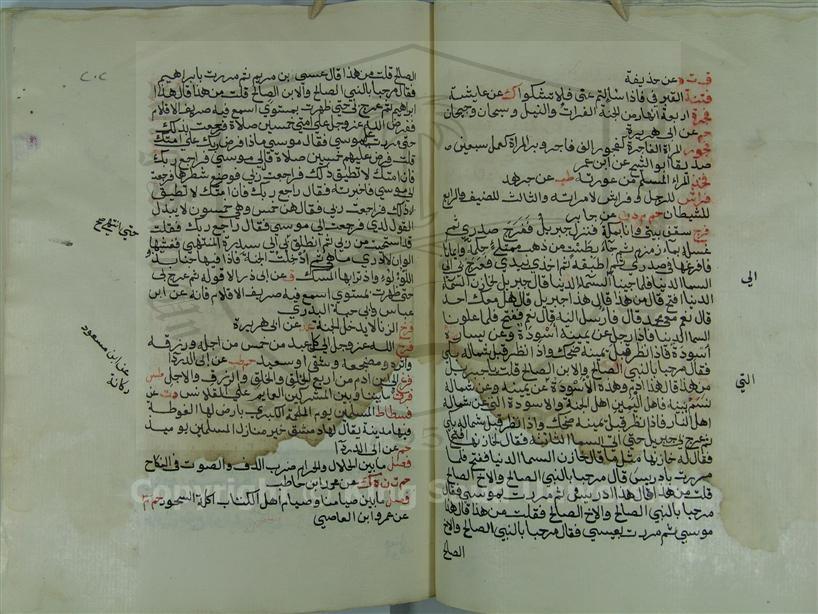 ق ت ه عن حذيفة
فتنة القبر في فاذا سئلتم عني فلا تشكوا ك عن عايشة
فجرت اربعة انهار من الجنة الفرات والنيل وسيحان وجيحان
حم عن ابى هريرة
فجور المراة الفاجرة كفجور الف فاجر وبر المراة كعمل سبعين
صديقا ابو الشيخ عن ابن عمر
فخذ المرء المسلم من عورته طب عن جرهد
فراش للرجل وفراش لامراته والثالث للضيف والرابع
للشيطان حم م د ن عن جابر
فرج سقف بيتي وانا بمكة فنزل جبريل ففرج صدري ثم
غسله بماء زمزم ثم جاء بطست من ذهب ممتلئ حكمة وايمانا
فافرغها في صدري ثم اطبقه ثم اخذ بيدي فعرج بي الى
السما الدنيا فلما جينا السما الدنيا قال جبريل لخازن السما
الدنيا افتح قال من هذا قال هذا جبريل قال هل معك احد
قال نعم معي محمد قال فارسل اليه قال نعم ففتح فلما علونا
السما الدنيا فاذا رجل عن يمينه اسودة وعن يساره
اسودة فاذا نظر قبل يمينه ضحك واذا نظر قبل شماله بكى
فقال مرحبا بالنبي الصالح والابن الصالح قلت يا جبريل
من هذا قال هذا ادم وهذه الاسودة عن يمينه وعن شماله
نسم بنيه فاهل اليمين اهل الجنة والاسودة التي عن شماله
اهل النار فاذا نظر قبل يمينه ضحك واذا نظر قبل شماله بكى
ثم عرج بي جبريل حتى اتى السما الثانية فقال لخازنها افتح
فقال له خازنها مثل ما قال خازن السما الدنيا ففتح فلما
مررت بادريس قال مرحبا بالنبي الصالح والاخ الصالح
قلت من هذا قال هذا ادريس ثم مررت بموسى فقال
مرحبا بالنبي الصالح والاخ الصالح فقلت من هذا قال هذا
موسى ثم مررت بعيسى فقال مرحبا بالنبي الصالح والاخ
الصالح
الى
التي
الصالح قلت من هذا قال عيسى بن مريم ثم مررت بابراهيم
فقال مرحبا بالنبي الصالح والابن الصالح قلت من هذا قال هذا
ابراهيم ثم عرج بي حتى ظهرت بمستوى اسمع فيه صريف الاقلام
ففرض الله عز وجل على امتي خمسين صلاة فرجعت بذلك
حتى مررت على موسى فقال موسى ماذا فرض ربك على امتك
قلت فرض عليهم خمسين صلاة قال لي موسى فراجع ربك
فان امتك لا تطيق ذلك فراجعت ربي فوضع شطرها فرجعت
الى موسى فاخبرته فقال راجع ربك فان امتك لا تطيق
ذلك فراجعت ربي فقال هن خمس وهي خمسون لا يبدل
القول لدي فرجعت الى موسى فقال راجع ربك فقلت
قد استحييت من ربي ثم انطلق بي الى سدرة المنتهى فغشيها
الوان لا ادري ما هي ثم ادخلت الجنة فاذا فيها جنابذ
اللؤلؤ واذا ترابها المسك ق عن ابى ذر الا قوله ثم عرج بي
حتى ظهرت لمستوى اسمع فيه صريف الاقلام فانه عن ابن
عباس وابى حبة البدري
فرخ الزنا لا يدخل الجنة عد عن ابى هريرة
فرغ الله عز وجل الى كل عبد من خمس من اجله ورزقه
واثره ومضجعه وشقي او سعيد حم طب عن ابى الدردا
فرغ الى ابن ادم من اربع الخلق والخلق والرزق والاجل طس
فرق ما بيننا وبين المشركين العمايم على القلانس د ت عن
فسطاط المسلمين يوم الملحمة الكبرى بارض لها الغوطة
فيها مدينة يقال لها دمشق خير منازل المسلمين يوميذ
حم عن ابى الدردا
فصل ما بين الحلال والحرام ضرب الدف والصوت في النكاح
حم ت ن ه ك عن محمد بن حاطب
فصل ما بين صيامنا وصيام اهل الكتاب اكلة السحور حم م
عن عمرو ابن العاصي
عن ابن مسعود
ركانة
٢٠٢